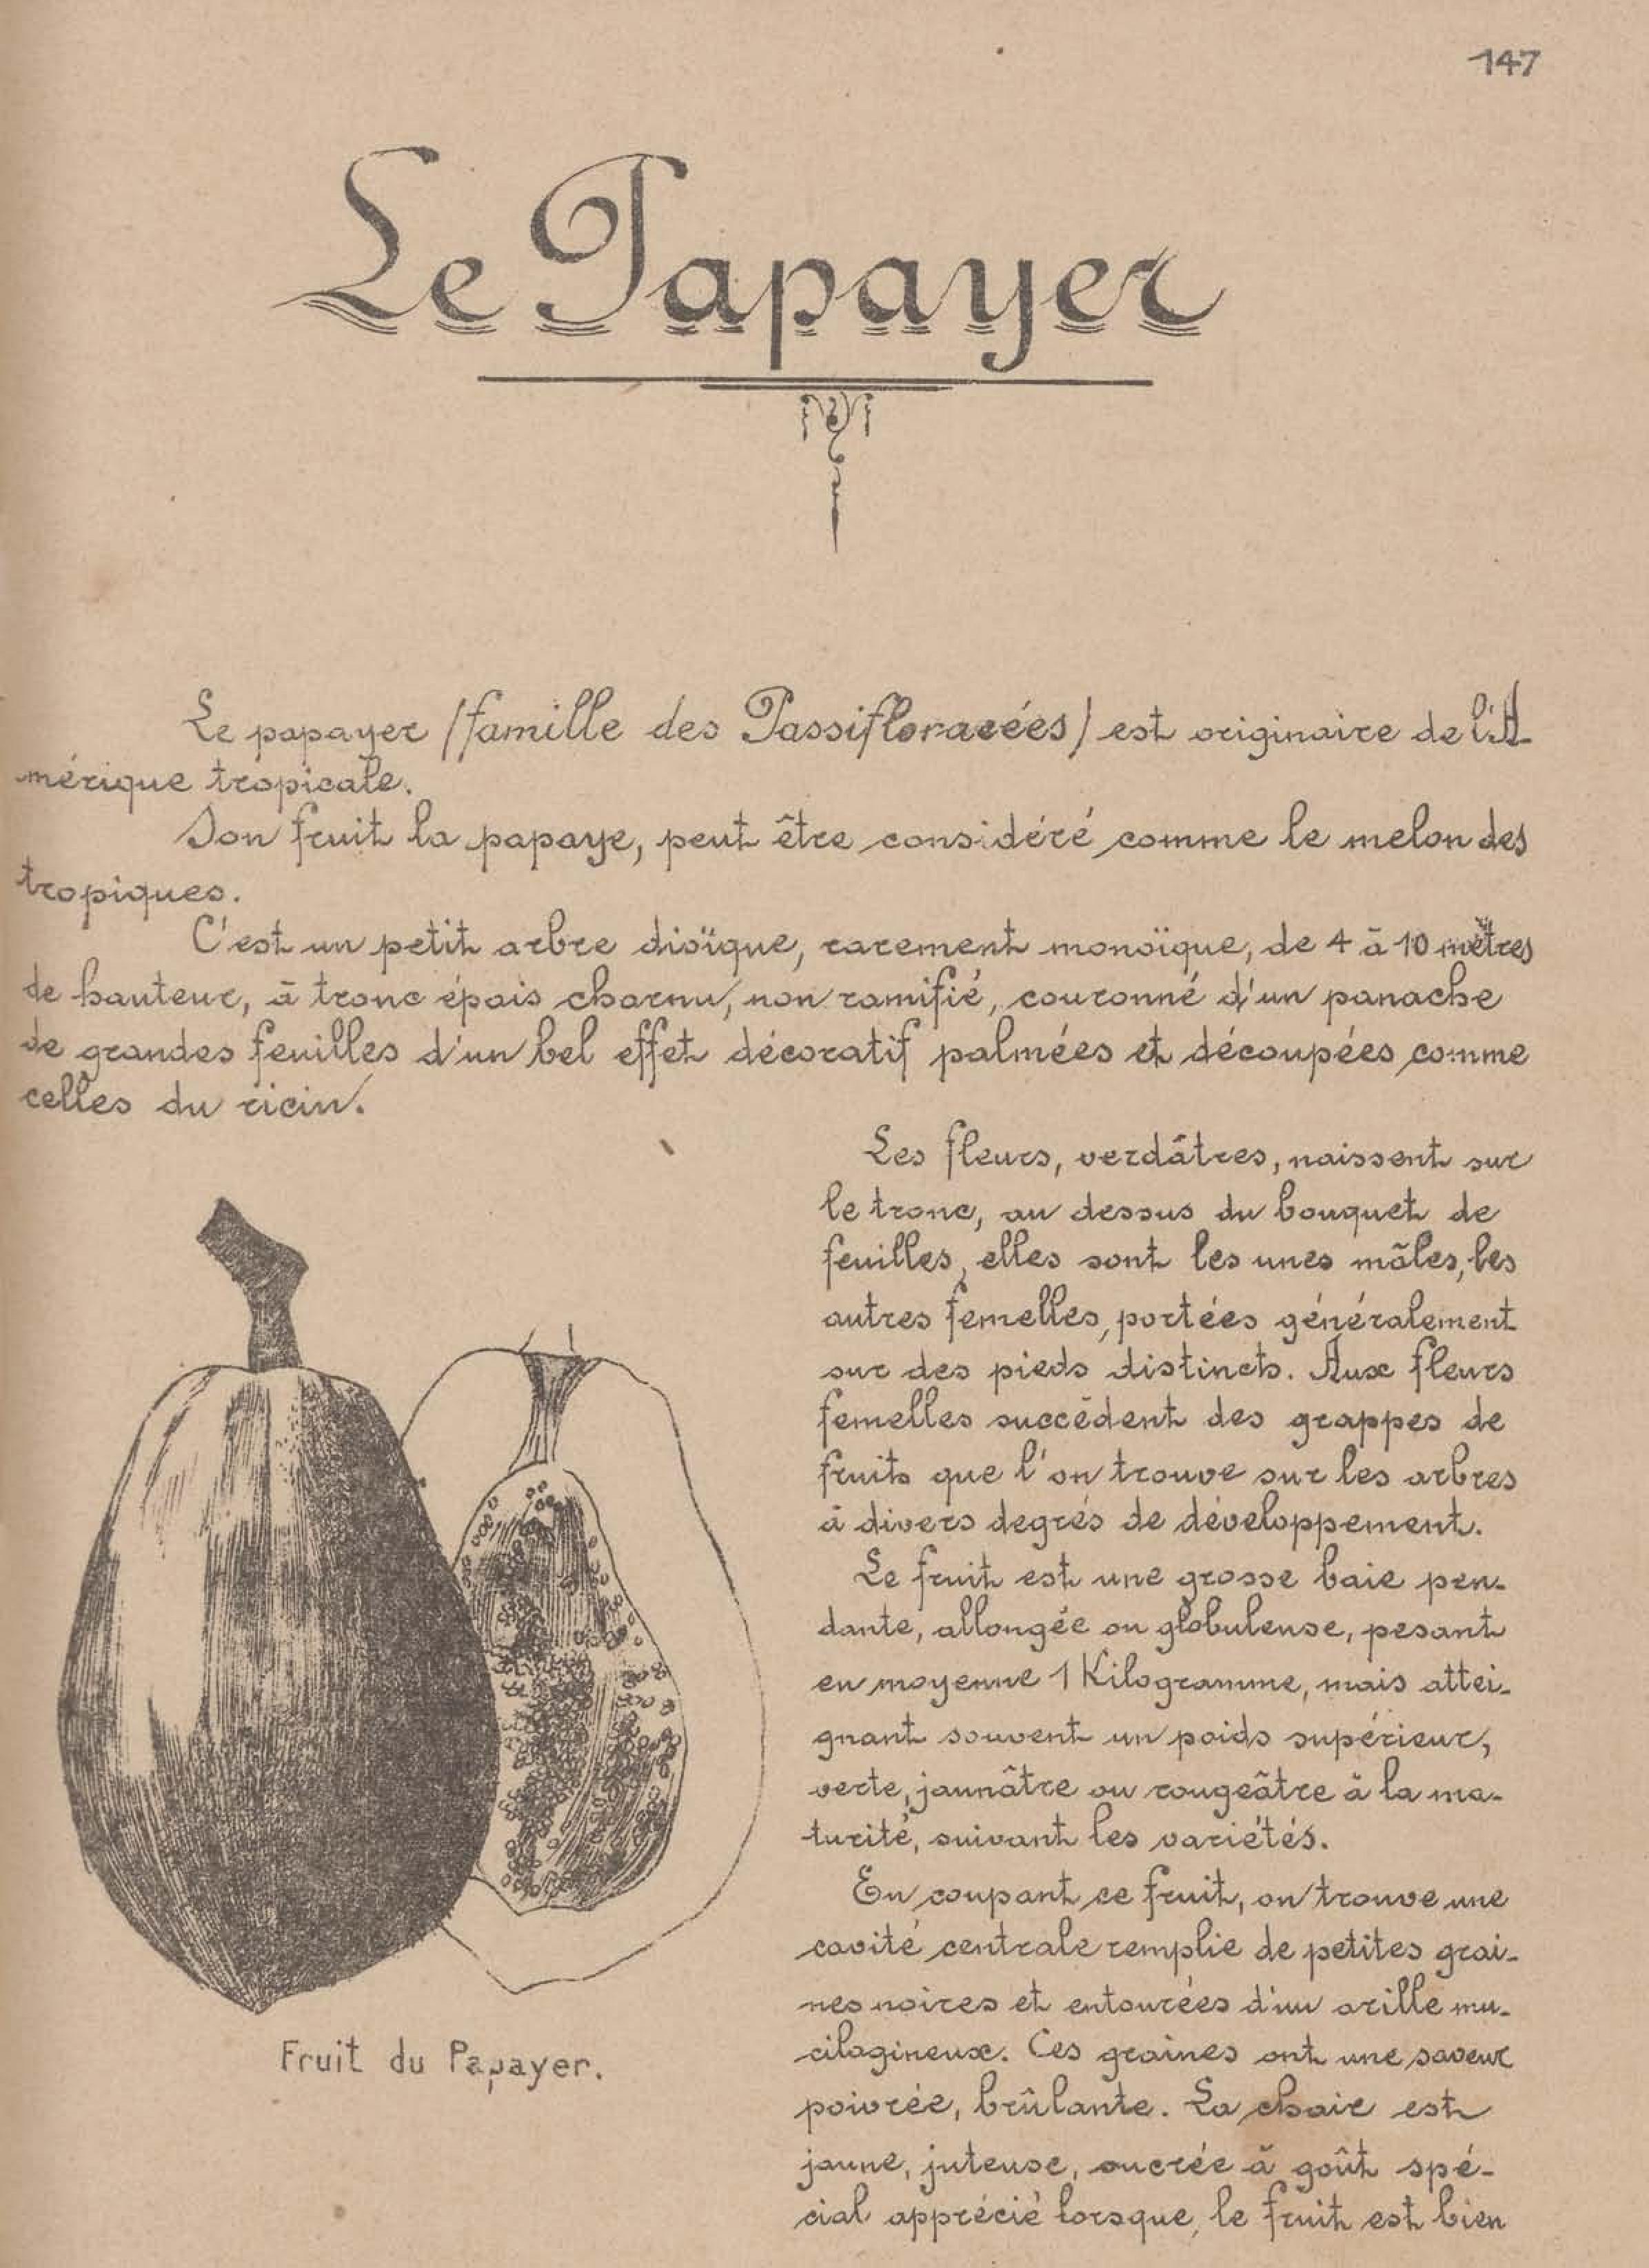 147
Le Papayer
Le papayer (famille des Passifloracées) est originaire de l'A-
mérique tropicale.
Son fruit la papaye, peut être considéré comme le melon des
tropiques.
C'est un petit arbre dioïque, rarement monoïque, de 4 à 10 mètres
de hauteur, à tronc épais charnu, non ramifié, couronné d'un panache
de grandes feuilles d'un bel effet décoratif palmées et découpées comme
celles du ricin.
Les fleurs, verdâtres, naissent sur
le tronc, au dessus du bouquet de
feuilles, elles sont les unes mâles, les
autres femelles, portées généralement
sur des pieds distincts. Aux fleurs
femelles succèdent des grappes de
fruits que l'on trouve sur les arbres
à divers degrés de développement.
Le fruit est une grosse baie pen-
dante, allongée ou globuleuse, pesant
en moyenne 1 Kilogramme, mais attei-
gnant souvent un poids supérieur,
verte, jaunâtre ou rougeâtre à la ma-
turité, suivant les variétés.
En coupant ce fruit, on trouve une
cavité centrale remplie de petites grai-
nes noires et entourées d'un arille mu-
cilagineux. Ces graines ont une saveur
poivrée, brûlante. La chair est
jaune, juteuse, sucrée à goût spé-
cial apprécié lorsque le fruit est bien
Fruit du Papayer.